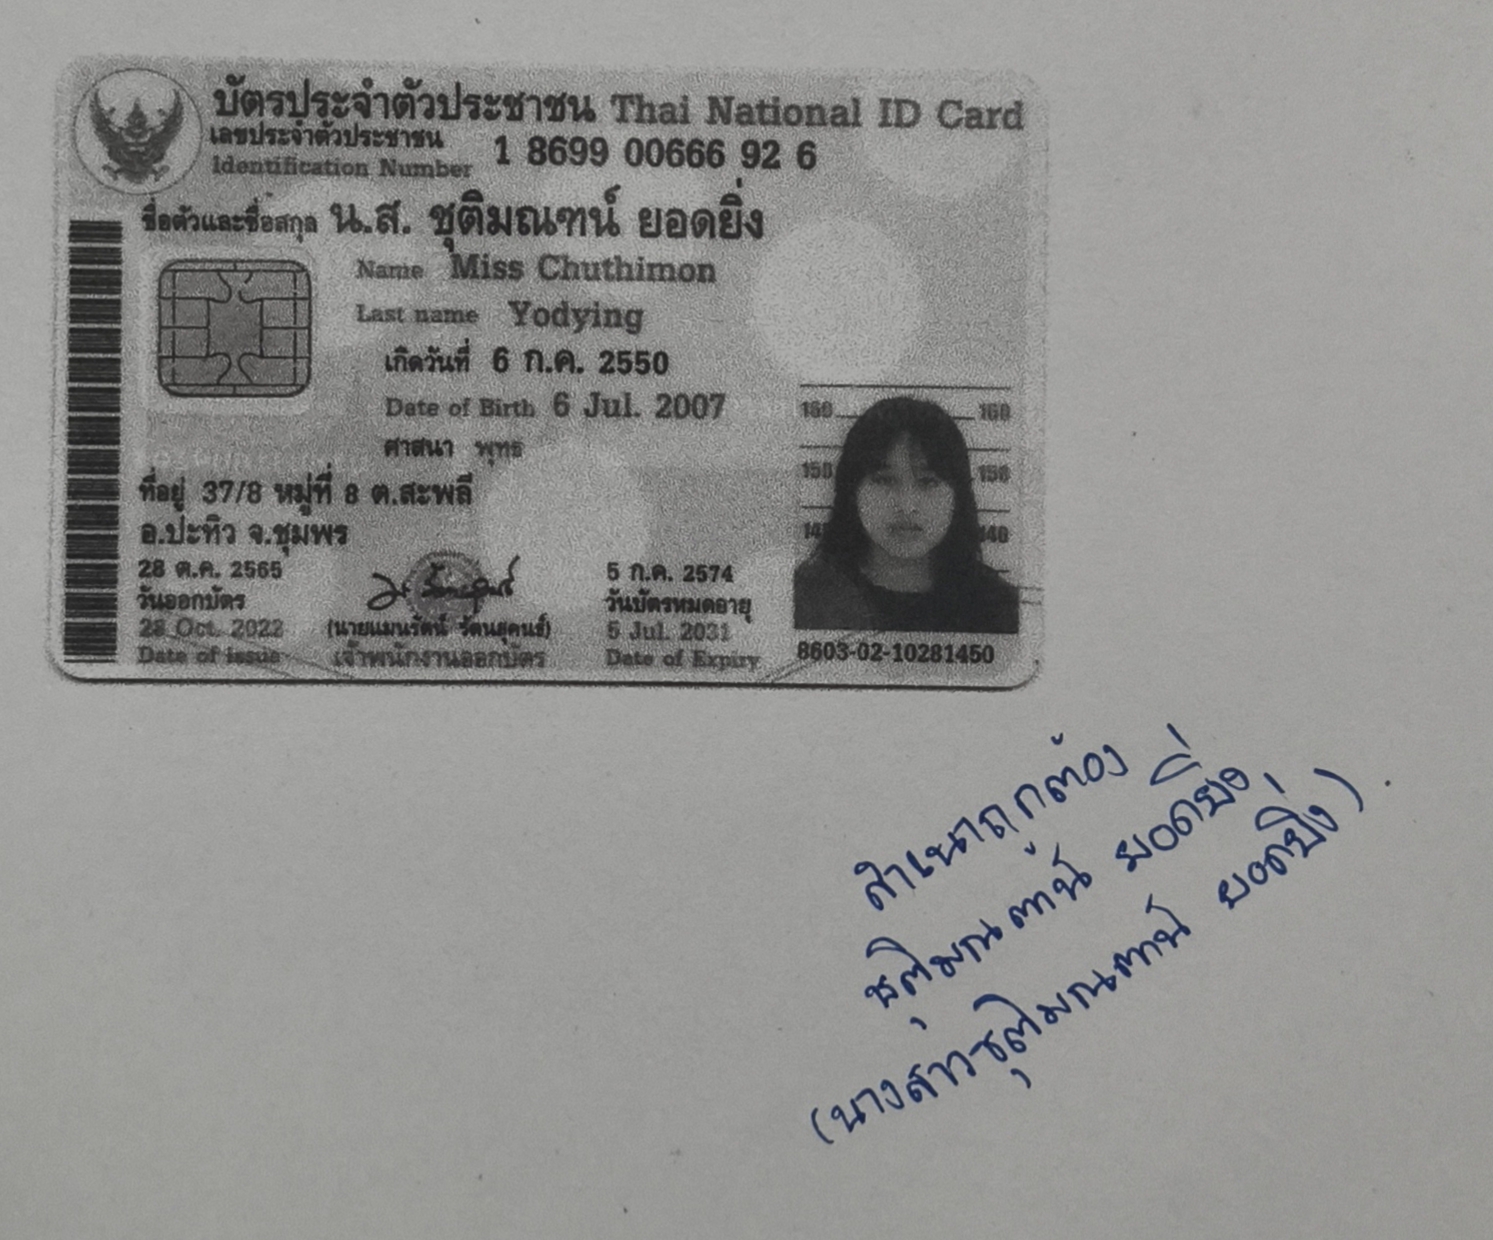 บัตรประจำตัวประชาชน Thai National ID Card
เลขประจำตัวประชาชน
Identification Number 1 8699 00666 92 6
ชื่อตัวและชื่อสกุล น.ส. ชุติมณฑน์ ยอดยิ่ง
Name Miss Chuthimon
Last name Yodying
เกิดวันที่ 6 ก.ค. 2550
Date of Birth 6 Jul. 2007
ศาสนา พุทธ
ที่อยู่ 37/8 หมู่ที่ 8 ต.สะพลี
อ.ปะทิว จ.ชุมพร
28 ต.ค. 2565
วันออกบัตร
28 Oct. 2022
Date of issue
(นายแมนรัตน์ รัตนสุคนธ์)
เจ้าพนักงานออกบัตร
5 ก.ค. 2574
วันบัตรหมดอายุ
5 Jul. 2031
Date of Expiry
160 160
150 150
140 140
8603-02-10281450
สำเนาถูกต้อง
ชุติมณฑน์ ยอดยิ่ง
(นางสาวชุติมณฑน์ ยอดยิ่ง)